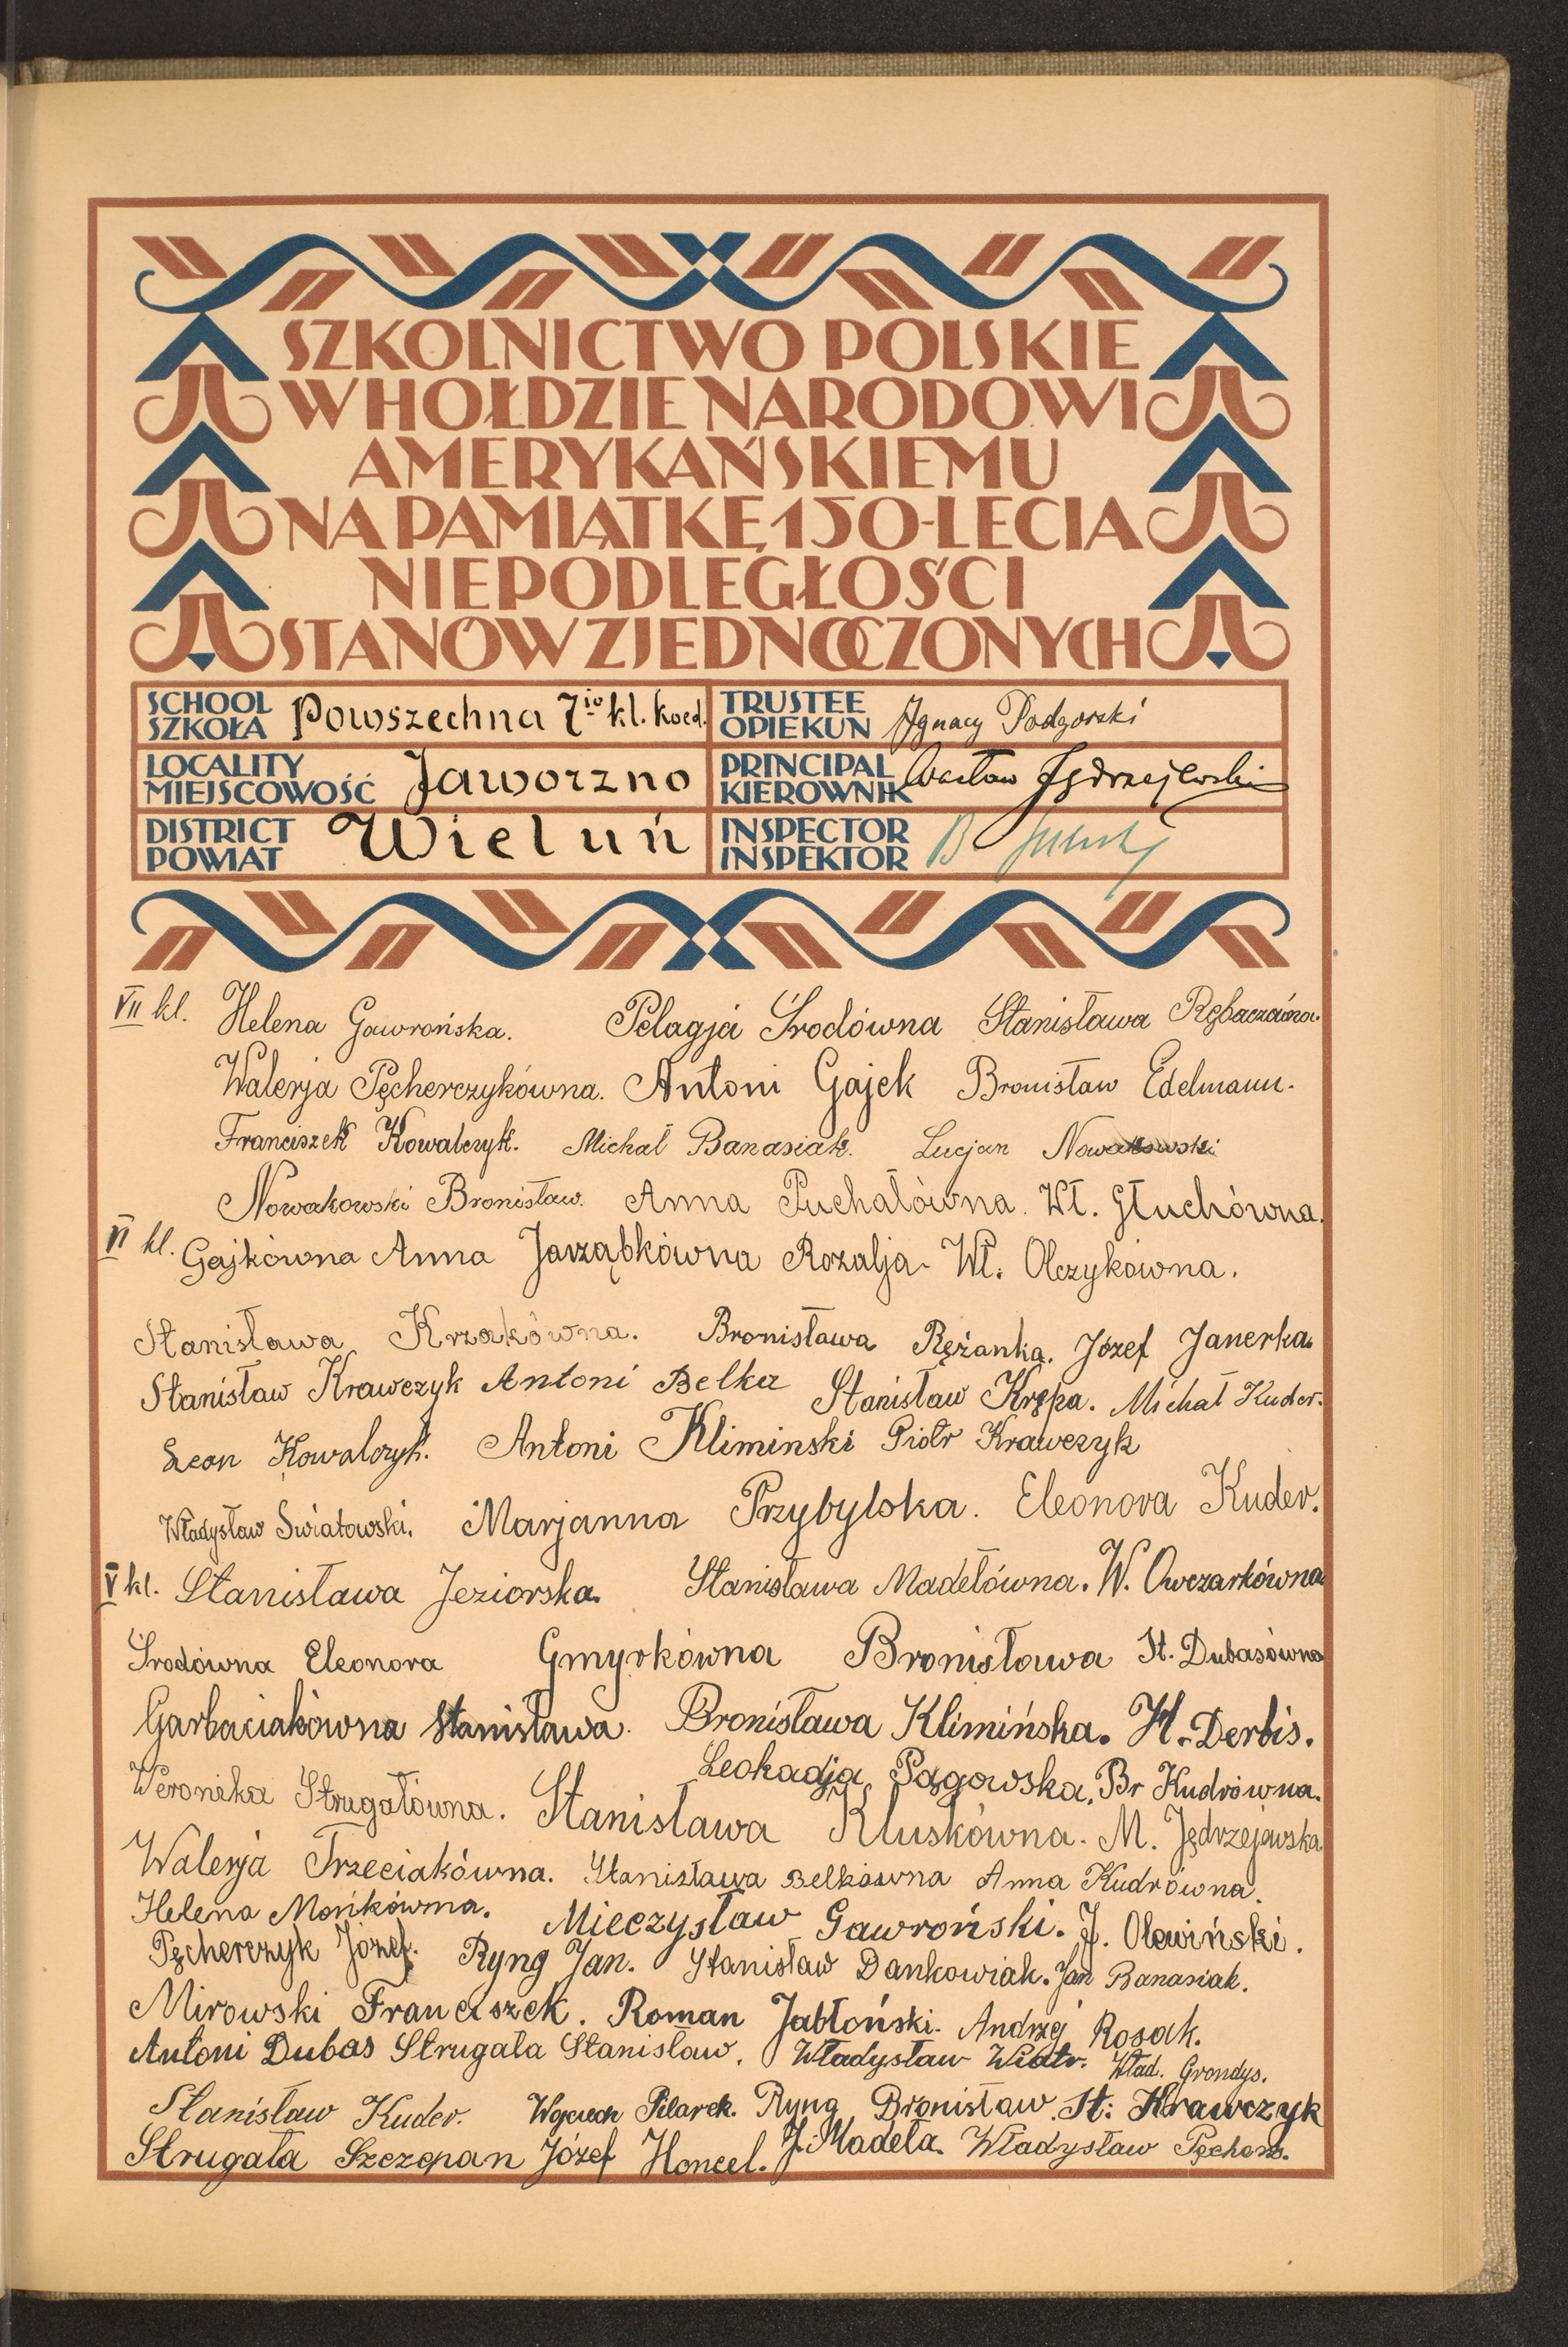 SZKOLNICTWO POLSKIE
W HOŁDZIE NARODOWI
AMERYKAŃSKIEMU
NA PAMIĄTKĘ 150-LECIA
NIEPODLEGŁOŚCI
STANÓW ZJEDNOCZONYCH
SCHOOL
SZKOŁA Powszechna 7io kl. koed.
TRUSTEE
OPIEKUN Ignacy Podgorski
LOCALITY
MIEJSCOWOŚĆ Jaworzno
PRINCIPAL
KIEROWNIK Wacław Jędrzejewski
DISTRICT
POWIAT Wieluń
INSPECTOR
INSPEKTOR B.
VII kl. Helena Gawrońska. Pelagja Środówna Stanisława
Walerja Pęcherczykówna. Antoni Gajek Bronisław Edelmann.
Franciszek Kowalczyk. Michał Banasiak. Lucjan Nowakowski
Nowakowski Bronisław. Anna Puchałówna. Wł. Głuchówna.
VI kl. Gajkówna Anna Jarząbkówna Rozalja Wł. Olczykówna.
Stanisława Krzakówna. Bronisława Rężanka. Józef Janerka.
Stanisław Krawczyk Antoni Belka Stanisław Krępa. Michał Kuder.
Leon Kowalczyk. Antoni Kliminski Piotr Krawczyk
Władysław Swiatowski. Marjanna Przybylska. Eleonora Kuder.
V kl. Stanisława Jeziorska. Stanisława Madełówna. W. Owczarkówna
Środówna Eleonora Gmyrkówna Bronisława St. Dubasówna
Garbaciakówna Stanisława. Bronisława Klimińska. H. Derbis.
Weronika Strugałówna. Leokadja Pągowska. Br Kudrówna.
Stanisława Kluskówna. M. Jędrzejewska
Walerja Trzeciakówna. Stanisława Belkówna Anna Kudrówna.
Helena Mońkówna. Mieczysław Gawroński. J. Olewiński.
Pęcherczyk Józef. Ryng Jan. Stanisław Dankowiak. Jan Banasiak.
Mirowski Franciszek. Roman Jabłoński. Andrzej Rosak.
Antoni Dubas Strugała Stanisław. Władysław Wiatr. Wład. Grondys.
Stanisław Kuder. Wojciech Pilarek. Ryng Bronisław. St. Krawczyk
Strugała Szczepan Józef Honcel. J. Madeła. Władysław Pęcherz.